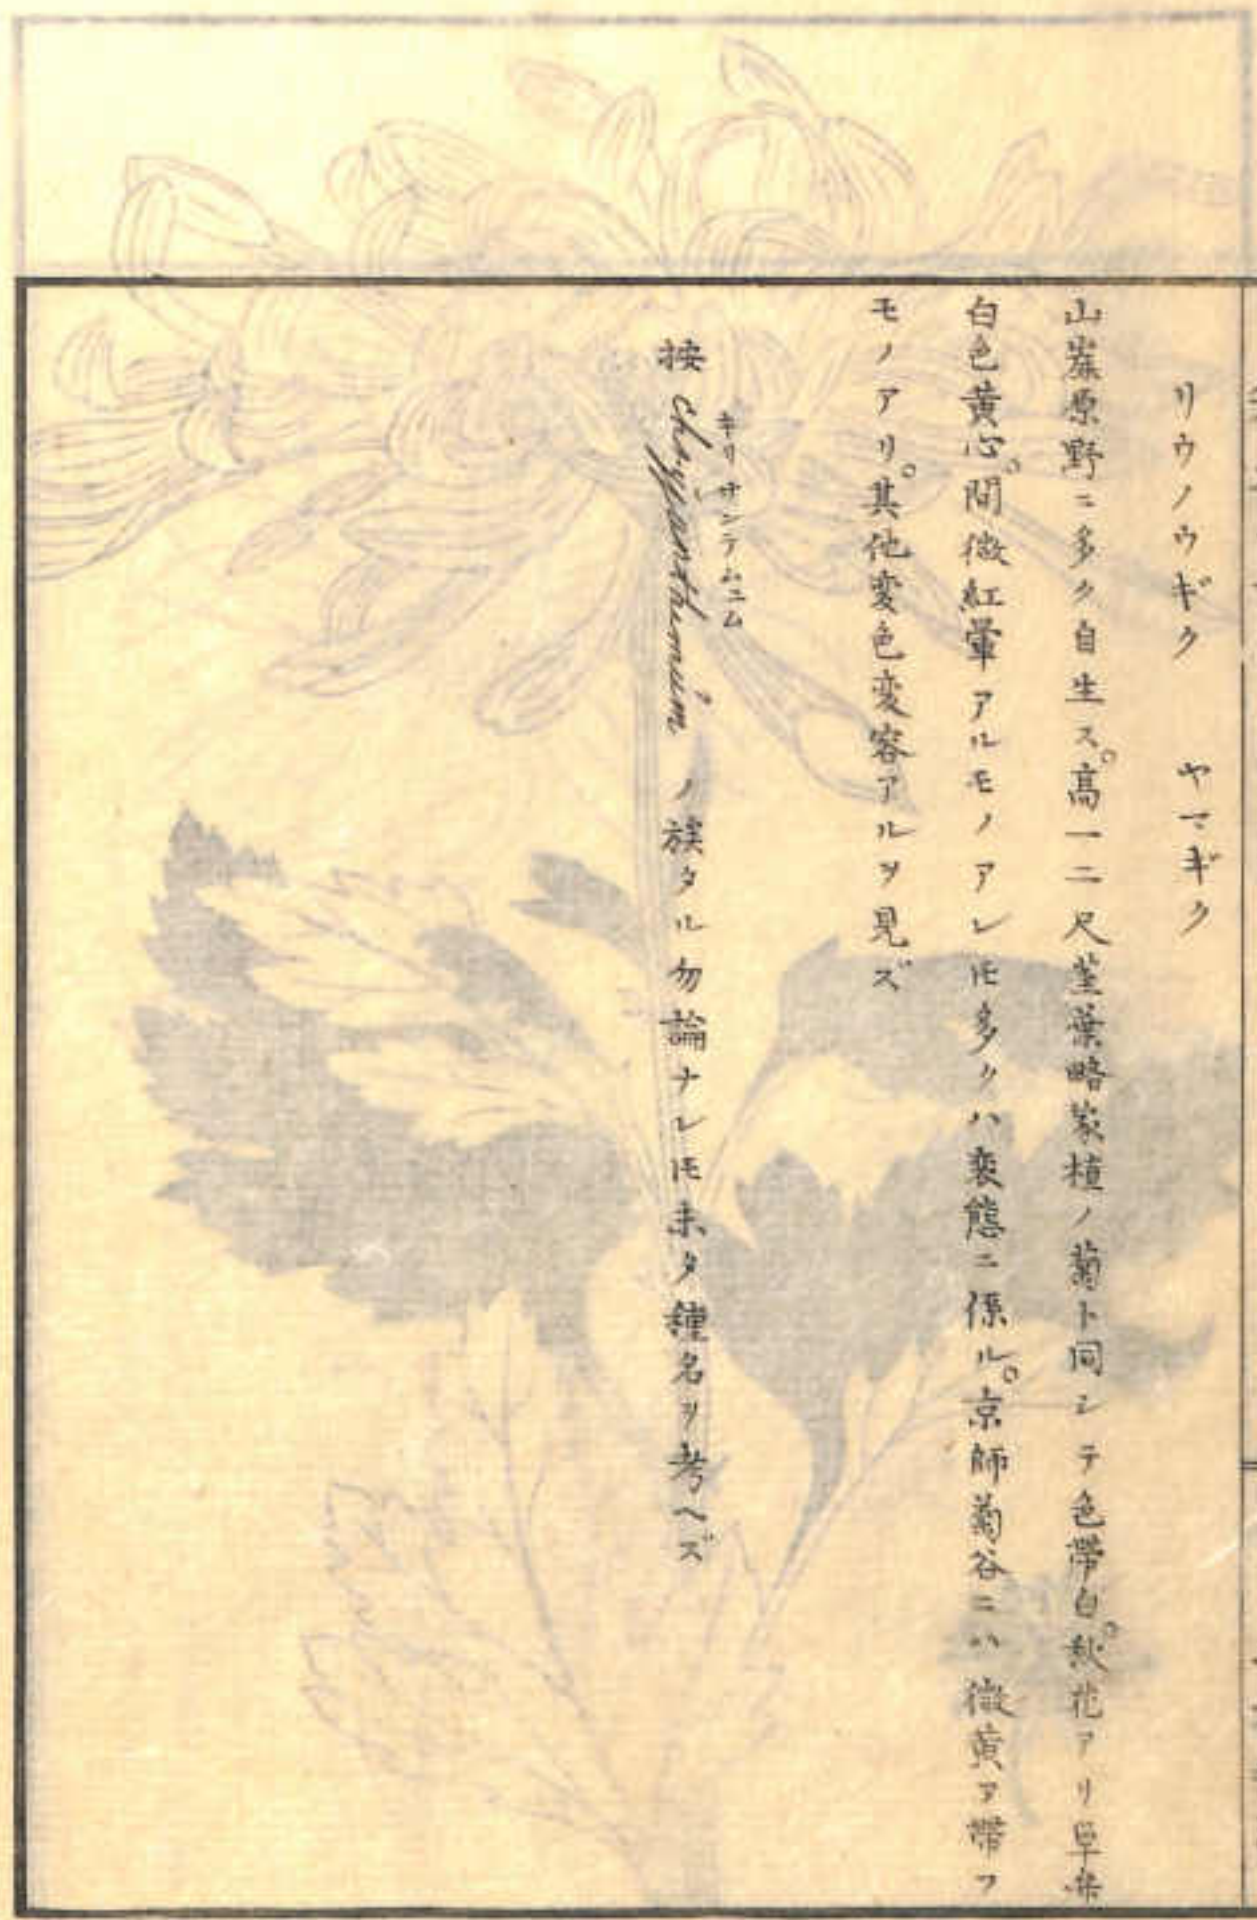 リウノウギク ヤマギク
山崖原野ニ多ク自生ス。高一二尺茎葉略家植ノ菊ト同シテ色帯白。秋花アリ単葉
白色黄心。間微紅暈アルモノアレ𪜈多クハ変態ニ係ル。京師菊谷ニハ微黄ヲ帯フ
モノアリ。其他変色変容アルヲ見ズ
キリサンテムユム
按 chrysanthemuim ノ族タル勿論ナレ𪜈未タ種名ヲ考ヘズ